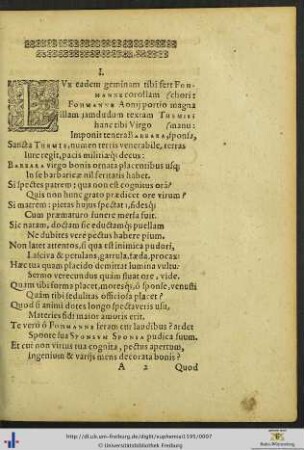 I.
LUX eadem geminam tibi fert FOR-
MANNE corollam
FORMANNE Aonij portio magna
chori:
illam jamdudum textam THEMIS
hanc tibi Virgo
manu:
Imponit tenera BARBARA, sponse,
Sancta THEMIS, numen terris venerabile, terras
Iure regit, pacis militiæq; decus:
BARBARA virgo bonis ornata placentibus usq;
In se barbaricæ nil feritatis habet.
Si spectes patrem: qua non est cognitus orâ?
Quis non hunc grato prædicet ore virum?
Si matrem: pietas hujus spectat, fidesq;
Cum præmaturo funere mersa fuit.
Sic natam, doctam sic eductamq; puellam
Ne dubites vere pectus habere pium.
Non latet attentos, si qua est inimica pudori,
Lasciva & petulans, garrula, fæda, procax:
Hæc tua quam placido demittat lumina vultu:
Sermo verecundus quàm fluat ore, vide.
Quàm tibi forma placet, moresq;, ô sponse, venusti
Quàm tibi sedulitas officiosa placet?
Quod si animi dotes longo spectaveris usu,
Materies fidi major amoris erit.
Te verò ô FORMANNE feram cui laudibus? ardet
Sponte suâ SPONSUM SPONSA pudica suum.
Et cui non virtus tua cognita, pectus apertum,
Ingenium & varijs mens decorata bonis?
A 2 Quod
http://dl.ub.uni-freiburg.de/diglit/euphemia1595/0007
© Universitätsbibliothek Freiburg
Baden-Württemberg